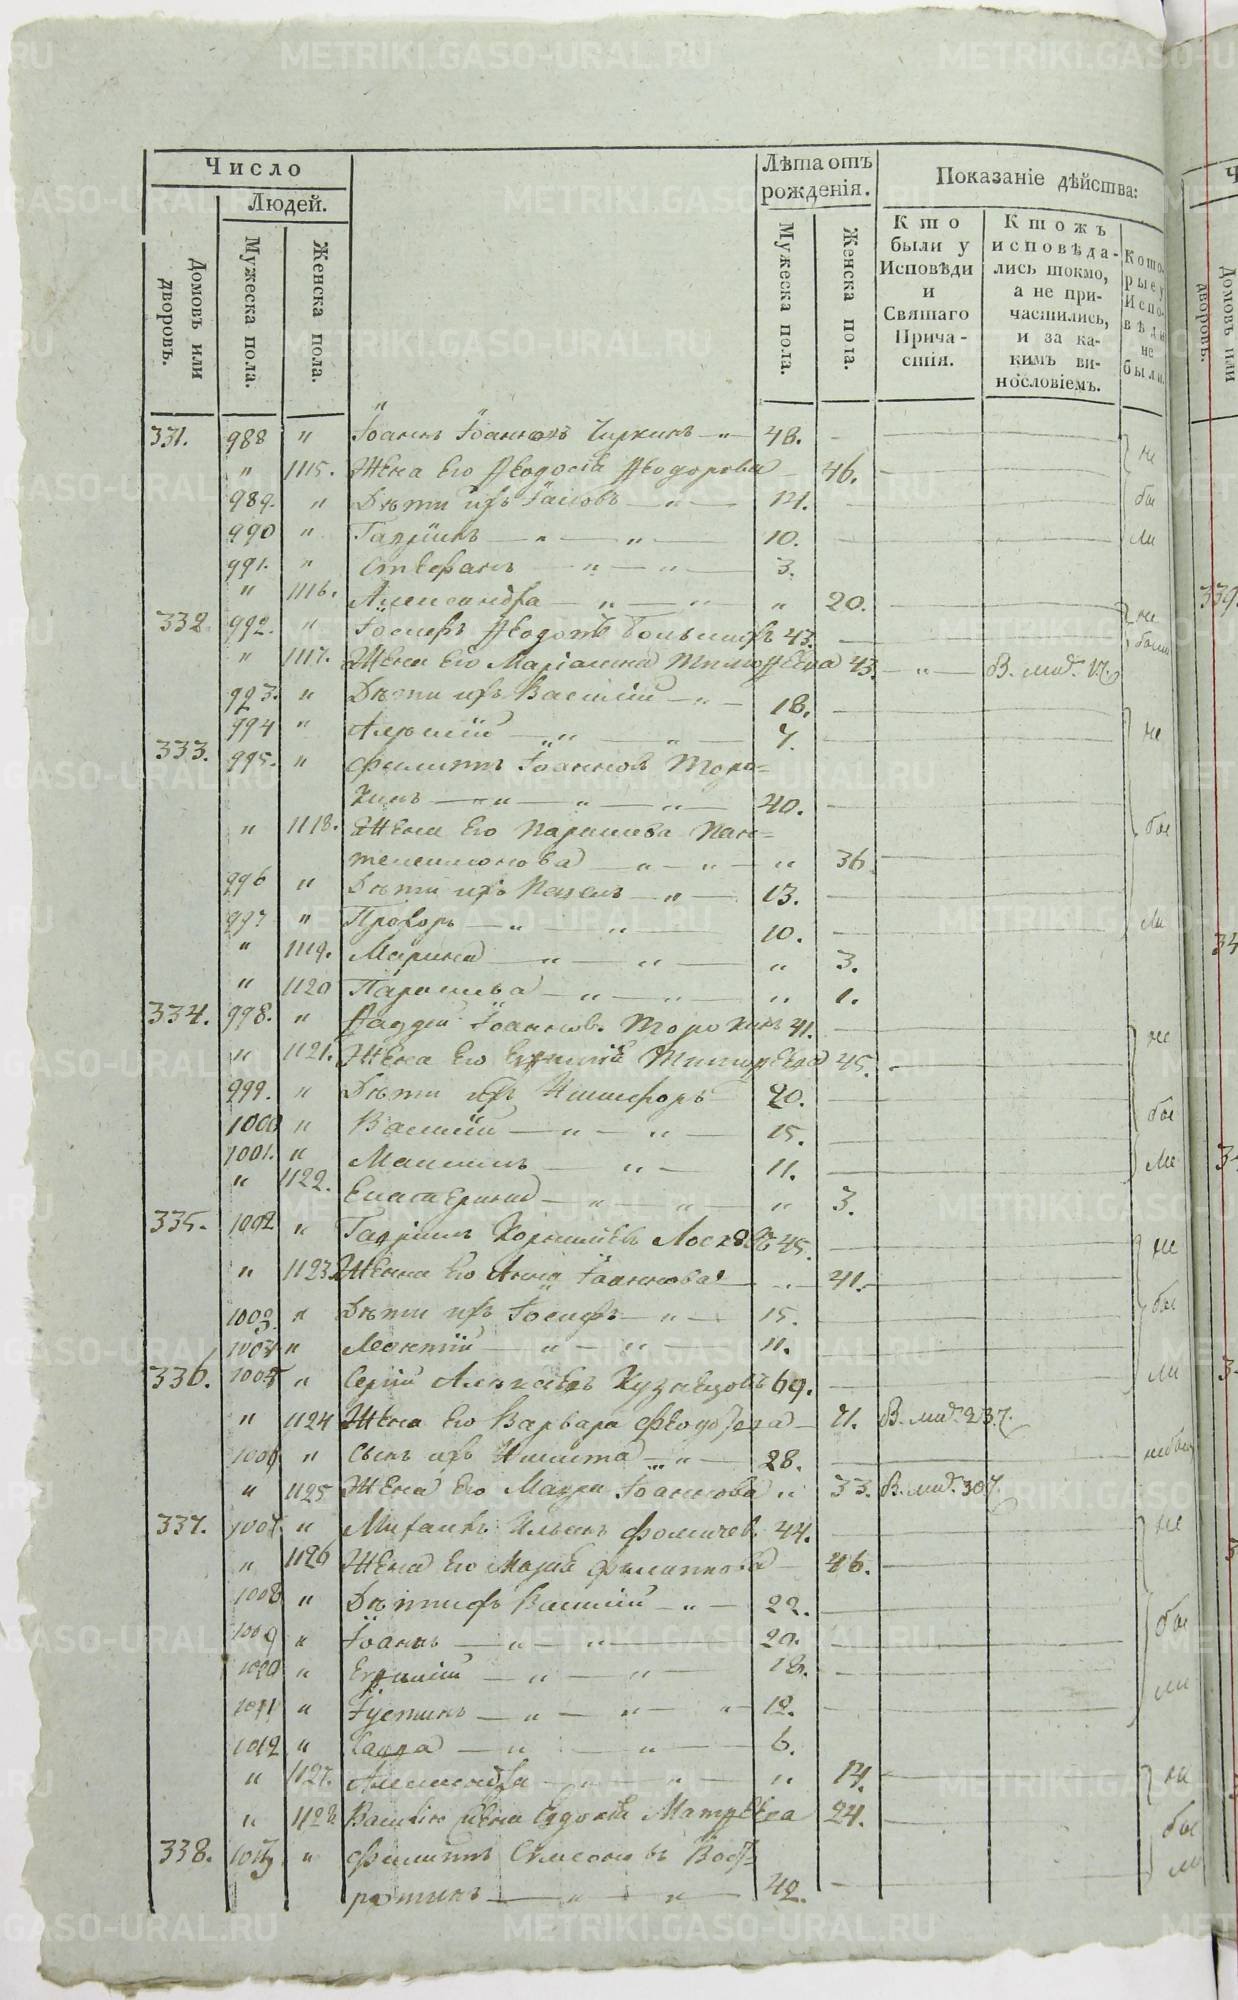 Число
Людей.
Домовъ или дворовъ.
Мужеска пола.
Женска пола.
Лѣта отъ рожденія.
Мужеска пола.
Женска пола.
Показаніе дѣйства:
Кто были у Исповѣди и Святаго Причастія.
Ктожъ исповѣдались токмо, а не причастились, и за какимъ винословіемъ.
Которые у Исповѣди не были.
331. 988 " Іоаннъ Іоанновъ Чиркинъ — " — 48. — не
" 1115. Жена Его Ѳеодосія Ѳеодорова — 46.
989. " Дѣти ихъ Іаковъ — " — 14. — бы
990 " Гавріилъ — " — " — 10. — ли
991. " Стефанъ — " — " — 3.
" 1116. Александра — " — " — " 20. — не
332. 992. " Іосифъ Ѳедотовъ 43. — были
" 1117. Жена Его Маріамна Тимоѳѣева 43. — " —
993. " Дѣти ихъ Василій — " — 18.
994 " Алексій — " — " — 7. — не
333. 995. " Филиппъ Іоанновъ Торо=
кинъ — " — " — " — 40.
" 1118. Жена Его Параскева Пан= бы
телеимонова — " — " — " 36.
996 " Дѣти ихъ Павелъ — " — 13.
997 " Прохоръ — " — " — 10. — ли
" 1119. Марина — " — " — " 3.
" 1120 Параскева — " — " — " 1.
334. 998. " Ѳаддей Іоанновъ Торокинъ 41. — не
" 1121. Жена Его Тимоѳѣева 45.
999. " Дѣти ихъ Никифоръ 20. — бы
1000 " Василій — " — " — 15.
1001. " Максимъ — " — 11. — ли
" 1122. Екатерина — " — " — " 3.
335. 1002 " Гавріилъ Корнилѣвъ 45. — не
" 1123. Жена Его Анна Іоаннова — " 41.
1003 " Дѣти ихъ Іосифъ — " — 15. — бы
1004 " Леонтій — " — " — 11.
336. 1005 " Сергій Алексѣевъ Кузнецовъ 69. — ли
" 1124 Жена Его Варвара —
1006 " Сынъ ихъ Никита — " — 28. — небылъ
" 1125 Жена Его Мавра Іоаннова " 33.
337. 1007 " Михаилъ Ильинъ Фомичев. 44. — не
" 1126 Жена Его Марія Филиппова — 46.
1008 " Дѣти ихъ Василій — " — 22.
1009 " Іоаннъ — " — " — 20. — бы
1010 " Евфимій — " — " — 18.
1011 " Іустинъ — " — " — " 12. — ли
1012 " Савва — " — " — 6.
" 1127. Александра — " — " — " 14. — не
" 1128 жена Евдокія Матвѣева 24. — бы
338. 1013 " Филиппъ Симеоновъ
ротинъ — " — " — 42. — ли
339.